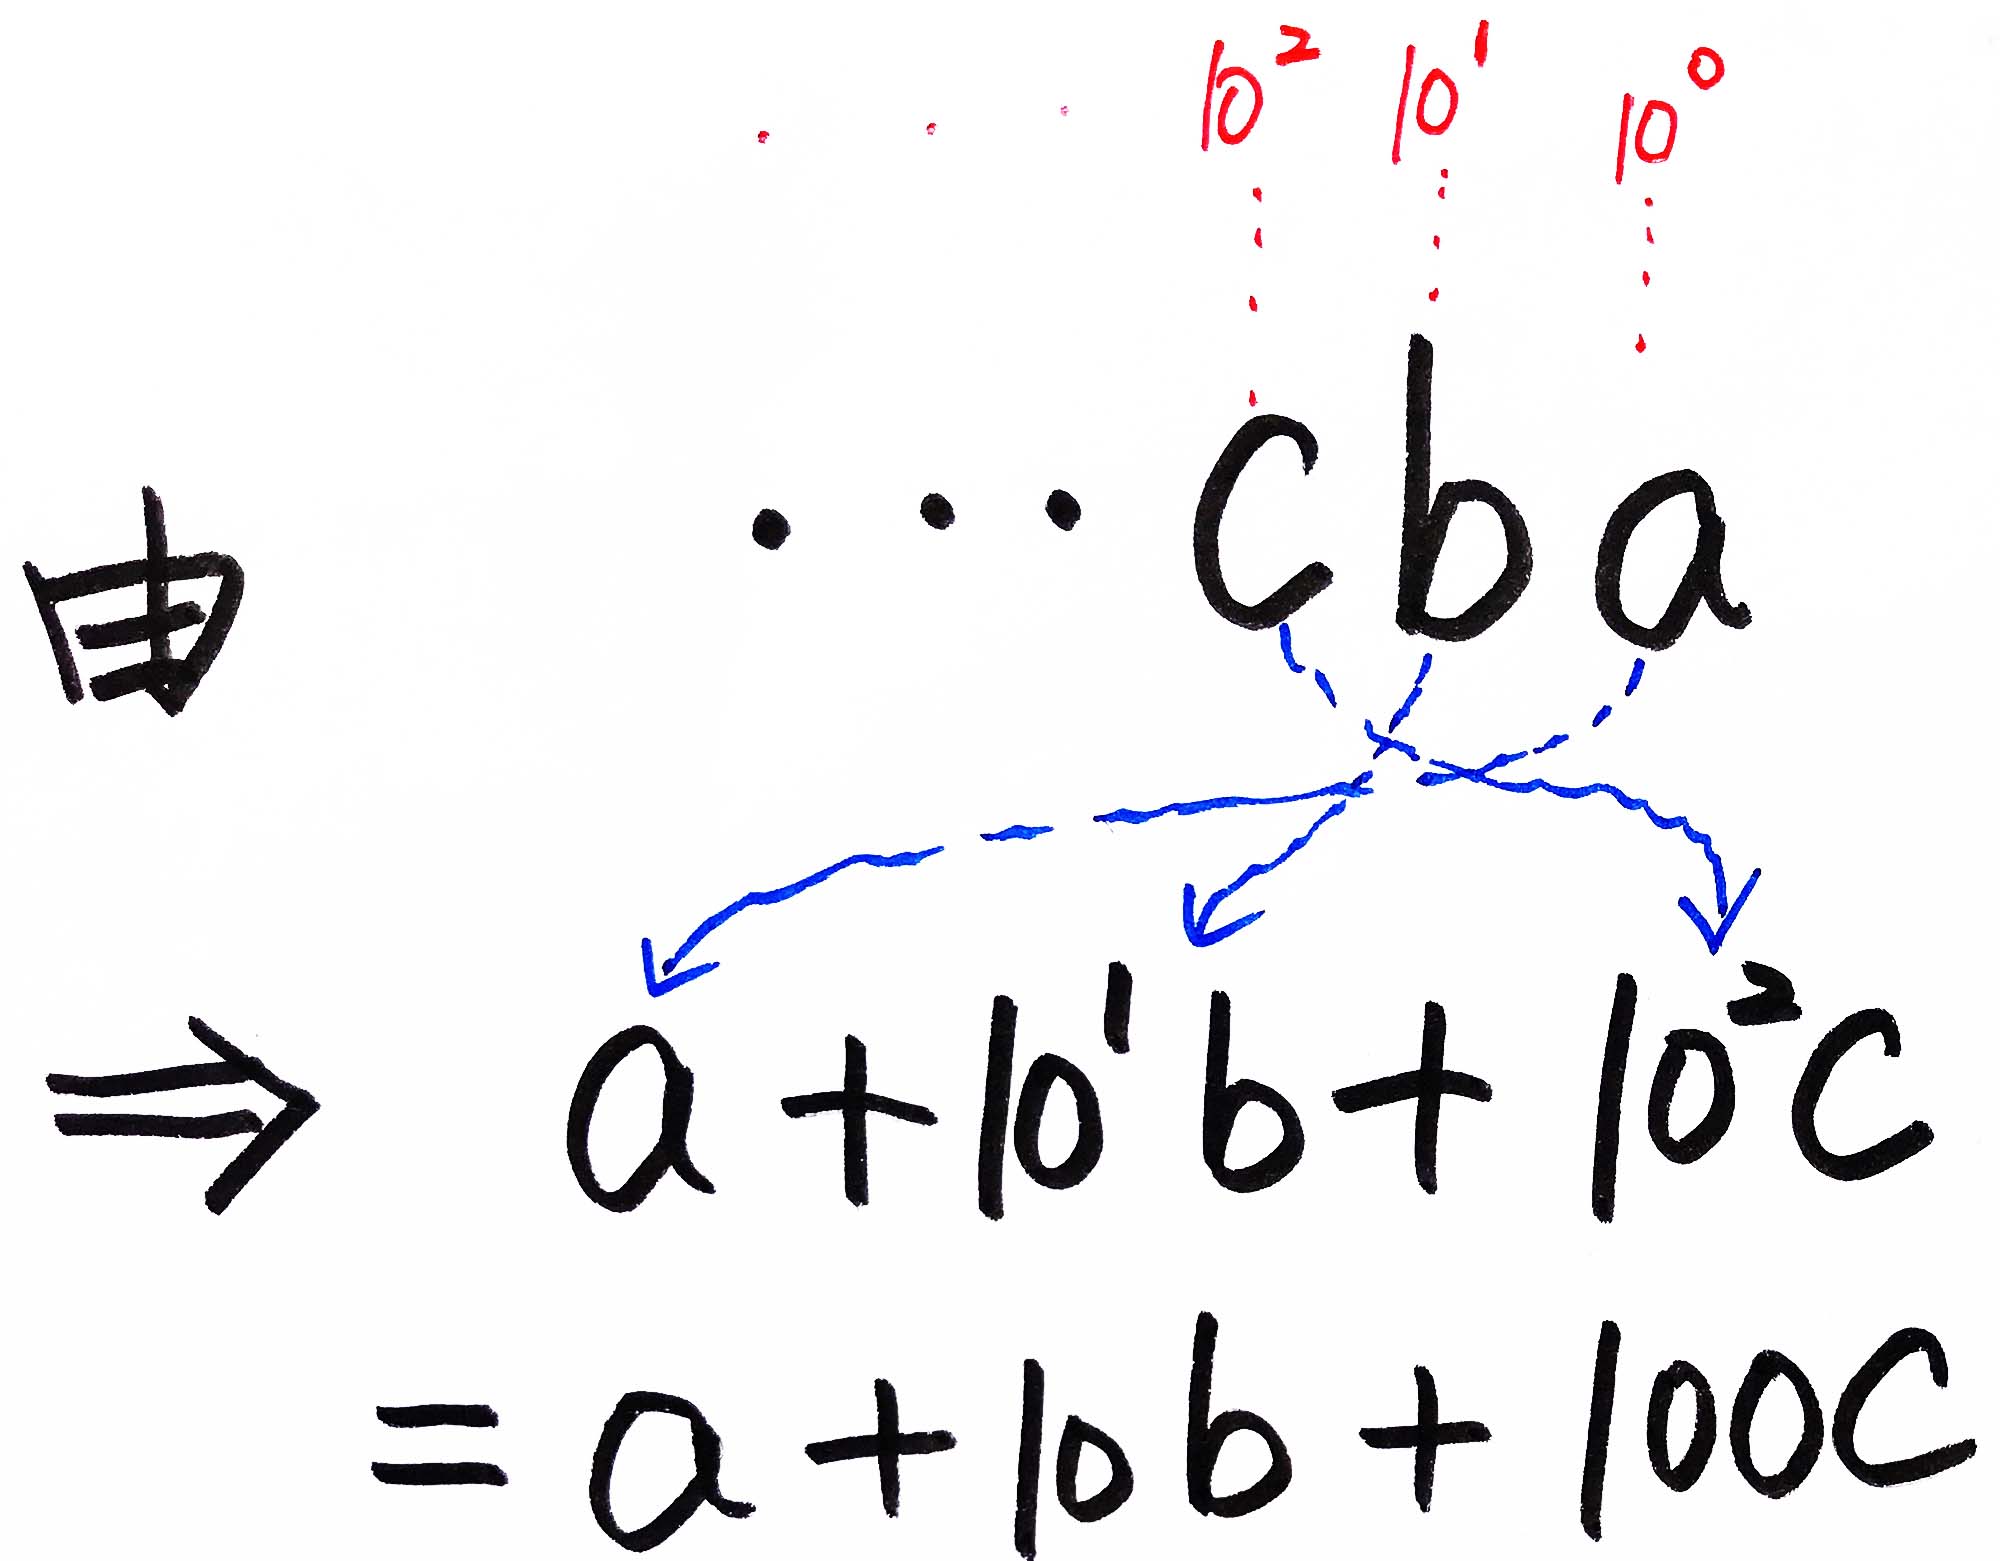 · · · 10² 10¹ 10⁰
由 · · · c b a
⇒ a + 10¹b + 10²c
= a + 10b + 100c